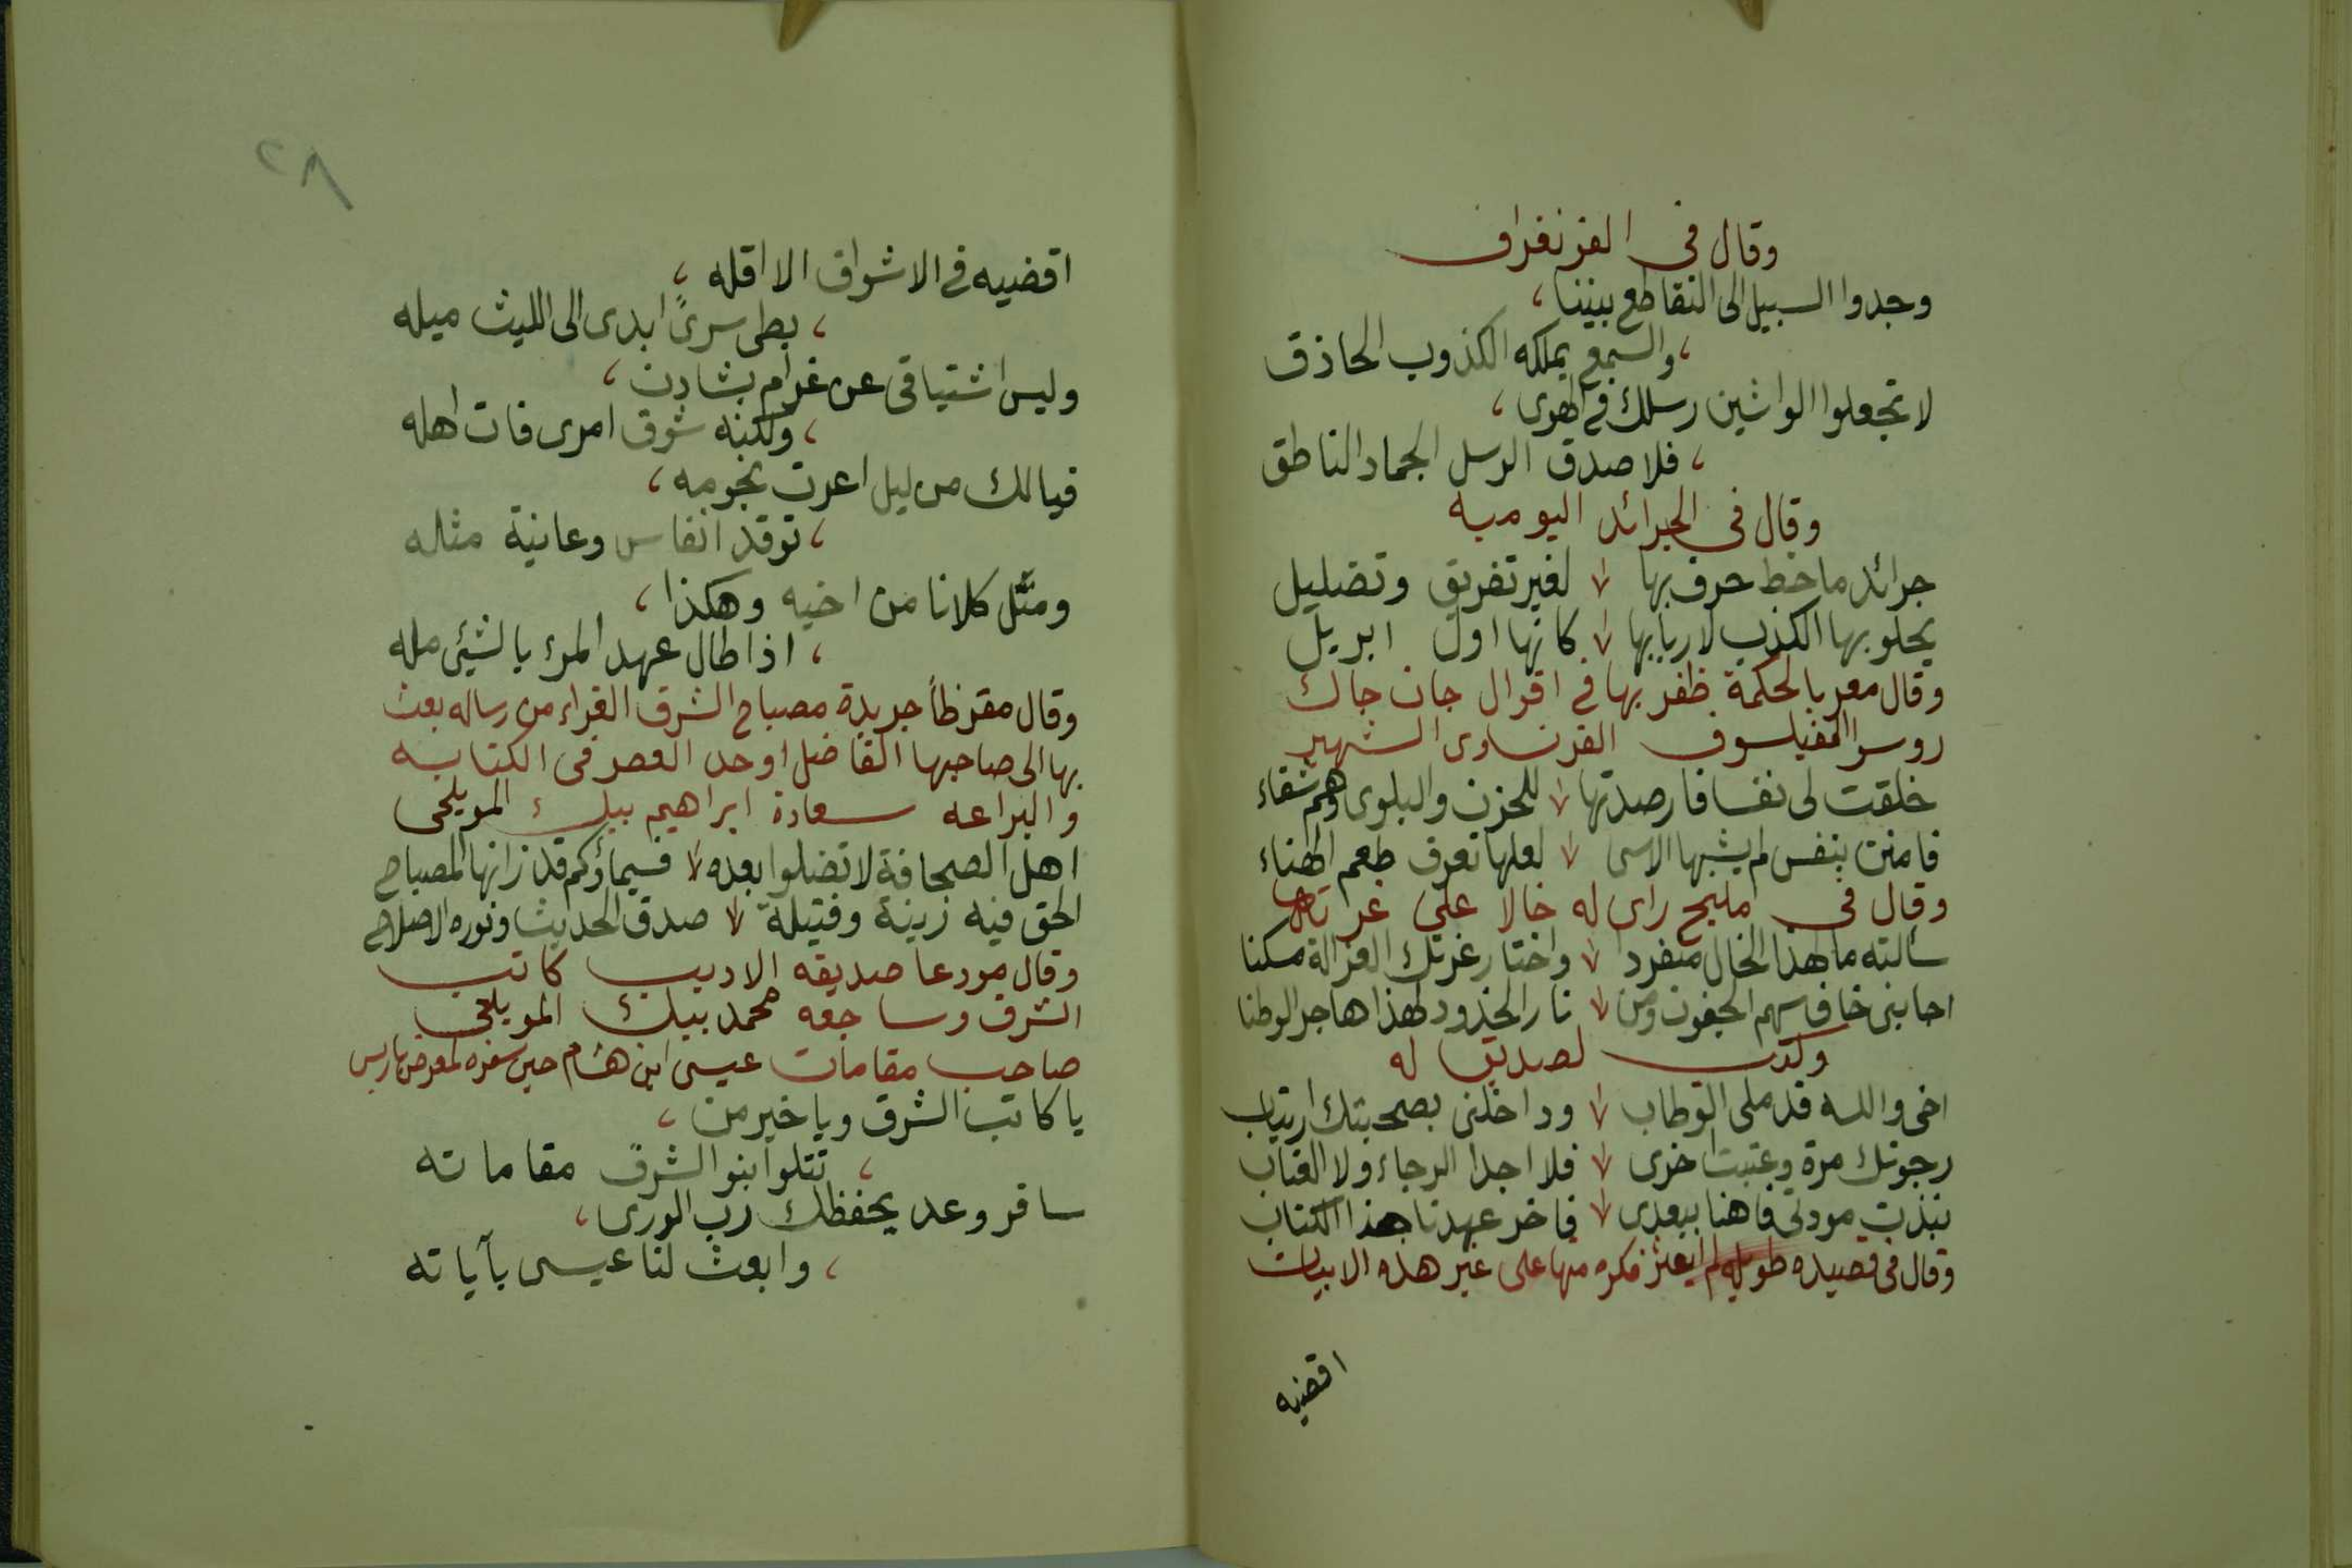 وقال فى الفرنفراف
وجدوا السبيل الى التقاطع بيننا ،
، والسمع يملكه الكذوب الحاذق
لا تجعلوا الواشين رسلك فى الهوى ،
، فلا صدق الرسل الجماد الناطق
وقال فى الجرائد اليوميه
جرائد ما خط حرف بها لغير تفريق وتضليل
يحلو بها الكذب لاربابها كانها اول ابريل
وقال معربا لحكمة ظفر بها فى اقوال جان جاك
روسو الفيلسوف الفرنساوى الشهير
خلقت لى نفسا فارصدتها للحزن والبلوى وهم شقاء
فامنن بنفس لم يشبها الاسى لعلها تعرف طعم الهناء
وقال فى مليح راى له خالا على
سألته ما لهذا الخال منفردا واختار غرتك الغزالة سكنا
اجابنى خاف سهم الجفون ومن نار الخدود لهذا هاجر الوطنا
وكتب لصديق له
اخى والله قد ملى الوطاب وداخلنى بصحبتك ارتياب
رجوتك مرة وعتبت اخرى فلا اجدا الرجاء ولا العتاب
نبذت مودتى فاهنا ببعدى فاخر عهدنا هذا الكتاب
وقال فى قصيده طويله لم يعثر فكره منها على غير هذه الابيات
اقضيه
٢٨
اقضيه فى الاشواق الا اقله ،
، بطى سرىً ابدى الى الليث ميله
وليس اشتياقى عن غرام بشادن ،
، ولكنه شوق امرى فات اهله
فيا لك من ليل اعرت نجومه ،
، توقد انفاسى وعانية مثله
ومَّل كلانا من اخيه وهكذا ،
، اذا طال عهد المرء بالشيئ مله
وقال مقرظاً جريدة مصباح الشرق الغراء من رساله بعث
بها الى صاحبها الفاضل اوحد العصر فى الكتابه
والبراعه سعادة ابراهيم بيك المويلحى
اهل الصحافة لا تضلوا بعده فسماؤكم قد زانها المصباح
الحق فيه زينة وفتيلة صدق الحديث ونوره الاصلاح
وقال مودعا صديقه الاديب كاتب
الشرق وساجعه محمد بيك المويلحى
صاحب مقامات عيسى ابن هشام حين سفره لمعرض باريس
يا كاتب الشرق ويا خير من ،
، تتلوا بنو الشرق مقاماته
سافر وعد يحفظك رب الورى ،
، وابعث لنا عيسى بآياته